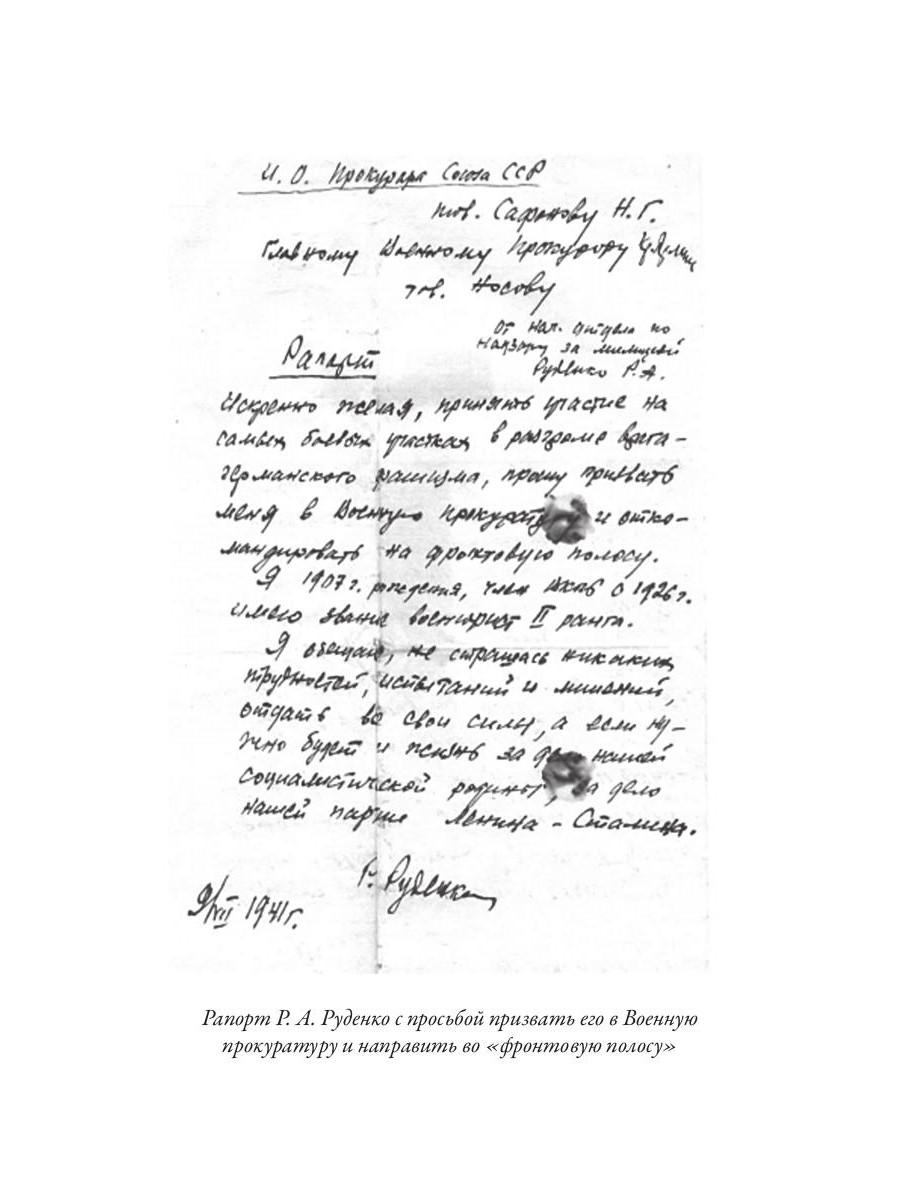 И. О. Прокурора Союза ССР
тов. Сафонову Н. Г.
Главному Военному Прокурору
тов. Носову
От нач. отдела по
надзору за милицией
Руденко Р. А.
Рапорт
Искренно желая, принять участие на
самых боевых участках в разгроме врага -
германского фашизма, прошу призвать
меня в Военную прокуратуру и отко-
мандировать на фронтовую полосу.
Я 1907 г. рождения, член ВКПб с 1926 г.
имею звание военюрист II ранга.
Я обещаю, не страшась никаких
трудностей, испытаний и лишений,
отдать все свои силы, а если ну-
жно будет и жизнь за дело нашей
социалистической родины, за дело
нашей партии Ленина - Сталина.
Р. Руденко
9/VII 1941 г.
Рапорт Р. А. Руденко с просьбой призвать его в Военную
прокуратуру и направить во «фронтовую полосу»